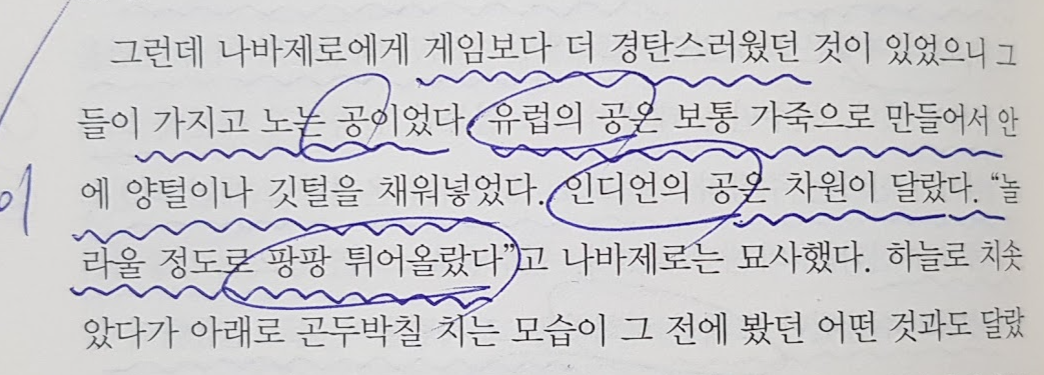 그런데 나바제로에게 게임보다 더 경탄스러웠던 것이 있었으니 그
들이 가지고 노는 공이었다. 유럽의 공은 보통 가죽으로 만들어서 안
에 양털이나 깃털을 채워넣었다. 인디언의 공은 차원이 달랐다. “놀
라울 정도로 팡팡 튀어올랐다”고 나바제로는 묘사했다. 하늘로 치솟
았다가 아래로 곤두박칠 치는 모습이 그 전에 봤던 어떤 것과도 달랐